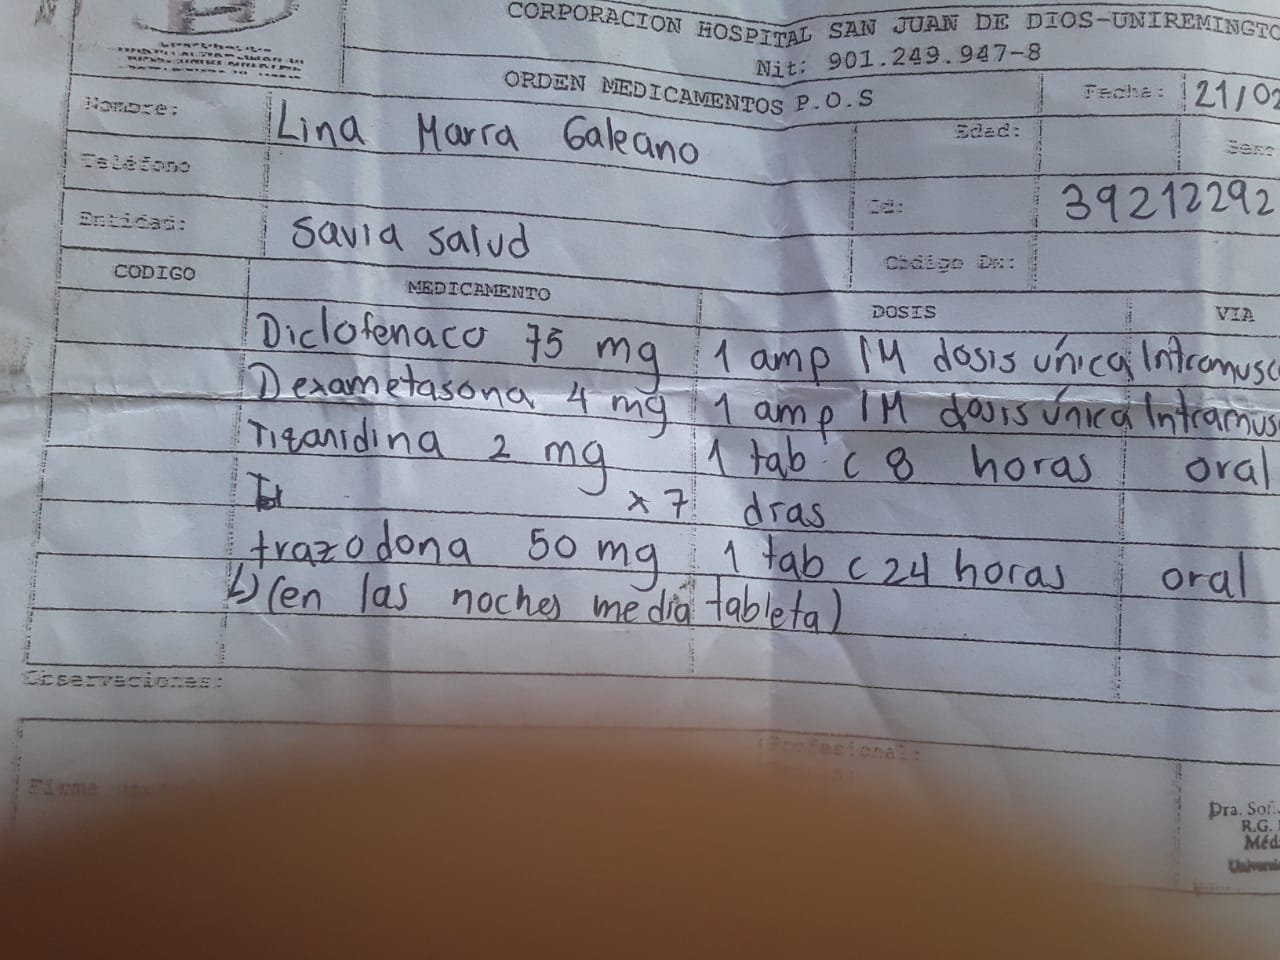 CORPORACION HOSPITAL SAN JUAN DE DIOS-UNIREMINGTO
Nit: 901.249.947-8
ORDEN MEDICAMENTOS P.O.S
Fecha: 21/02
Nombre: Lina Marra Galeano
Edad:
Sexo
Teléfono
Id: 39212292
Entidad: Savia Salud
Código Dx:
CODIGO MEDICAMENTO DOSIS VIA
Diclofenaco 75 mg 1 amp IM dosis única Intramusc
Dexametasona 4 mg 1 amp IM dosis única Intramus
Tizanidina 2 mg 1 tab c 8 horas oral
x 7 dras
trazodona 50 mg 1 tab c 24 horas oral
(en las noches media tableta)
Observaciones:
Profesional:
Firma
Dra. Sofi
R.G.
Méd
Universi